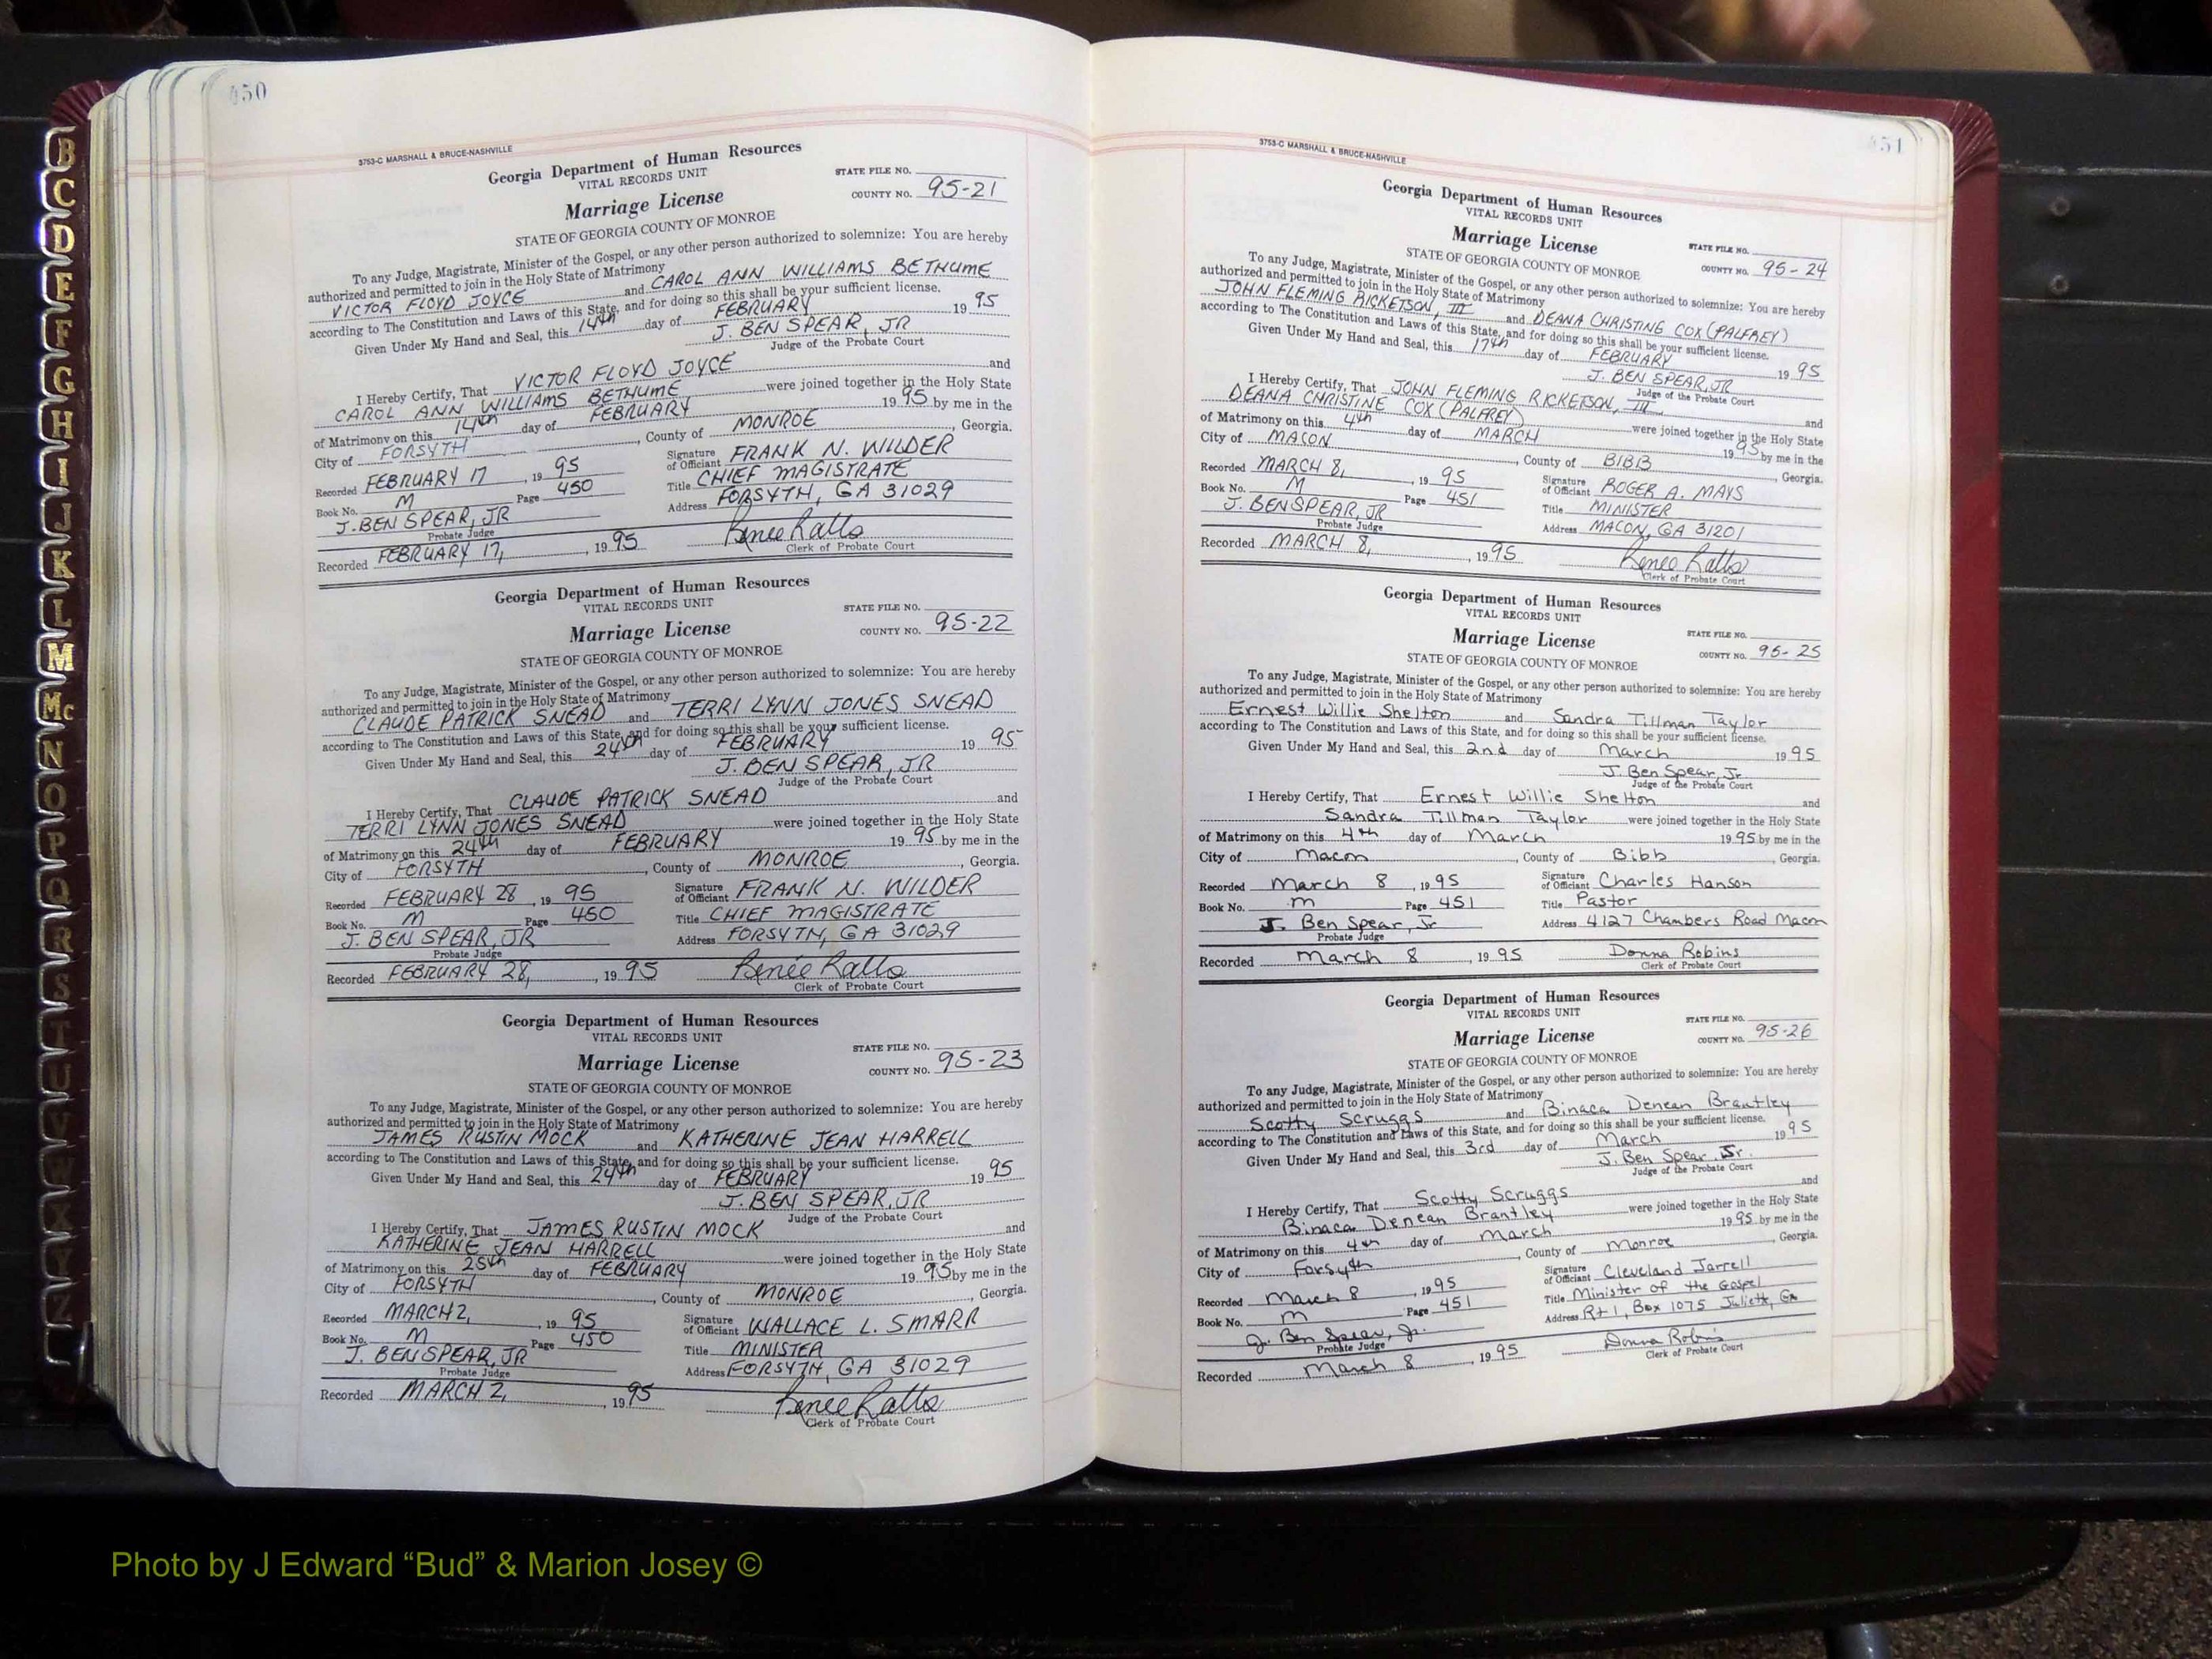 450
3753-C MARSHALL & BRUCE-NASHVILLE
Georgia Department of Human Resources
VITAL RECORDS UNIT
STATE FILE NO.
Marriage License
COUNTY NO. 95-21
STATE OF GEORGIA COUNTY OF MONROE
To any Judge, Magistrate, Minister of the Gospel, or any other person authorized to solemnize: You are hereby
authorized and permitted to join in the Holy State of Matrimony
VICTOR FLOYD JOYCE and CAROL ANN WILLIAMS BETHUME
according to The Constitution and Laws of this State, and for doing so this shall be your sufficient license.
Given Under My Hand and Seal, this 14th day of FEBRUARY 19 95
J. BEN SPEAR, JR
Judge of the Probate Court
I Hereby Certify, That VICTOR FLOYD JOYCE and
CAROL ANN WILLIAMS BETHUME were joined together in the Holy State
of Matrimony on this 14th day of FEBRUARY 19 95 by me in the
City of FORSYTH, County of MONROE, Georgia.
Recorded FEBRUARY 17, 19 95 Signature of Officiant FRANK N. WILDER
Book No. M Page 450 Title CHIEF MAGISTRATE
J. BEN SPEAR, JR Address FORSYTH, GA 31029
Probate Judge
Recorded FEBRUARY 17, 19 95 Renee Ratto
Clerk of Probate Court
Georgia Department of Human Resources
VITAL RECORDS UNIT
STATE FILE NO.
Marriage License
COUNTY NO. 95-22
STATE OF GEORGIA COUNTY OF MONROE
To any Judge, Magistrate, Minister of the Gospel, or any other person authorized to solemnize: You are hereby
authorized and permitted to join in the Holy State of Matrimony
CLAUDE PATRICK SNEAD and TERRI LYNN JONES SNEAD
according to The Constitution and Laws of this State, and for doing so this shall be your sufficient license.
Given Under My Hand and Seal, this 24th day of FEBRUARY 19 95
J. BEN SPEAR, JR
Judge of the Probate Court
I Hereby Certify, That CLAUDE PATRICK SNEAD and
TERRI LYNN JONES SNEAD were joined together in the Holy State
of Matrimony on this 24th day of FEBRUARY 19 95 by me in the
City of FORSYTH, County of MONROE, Georgia.
Recorded FEBRUARY 28, 19 95 Signature of Officiant FRANK N. WILDER
Book No. M Page 450 Title CHIEF MAGISTRATE
J. BEN SPEAR, JR Address FORSYTH, GA 31029
Probate Judge
Recorded FEBRUARY 28, 19 95 Renée Ratto
Clerk of Probate Court
Georgia Department of Human Resources
VITAL RECORDS UNIT
STATE FILE NO.
Marriage License
COUNTY NO. 95-23
STATE OF GEORGIA COUNTY OF MONROE
To any Judge, Magistrate, Minister of the Gospel, or any other person authorized to solemnize: You are hereby
authorized and permitted to join in the Holy State of Matrimony
JAMES RUSTIN MOCK and KATHERINE JEAN HARRELL
according to The Constitution and Laws of this State, and for doing so this shall be your sufficient license.
Given Under My Hand and Seal, this 24th day of FEBRUARY 19 95
J. BEN SPEAR, JR
Judge of the Probate Court
I Hereby Certify, That JAMES RUSTIN MOCK and
KATHERINE JEAN HARRELL were joined together in the Holy State
of Matrimony on this 25th day of FEBRUARY 19 95 by me in the
City of FORSYTH, County of MONROE, Georgia.
Recorded MARCH 2, 19 95 Signature of Officiant WALLACE L. SMARR
Book No. M Page 450 Title MINISTER
J. BEN SPEAR, JR Address FORSYTH, GA 31029
Probate Judge
Recorded MARCH 2, 19 95 Renee Ratto
Clerk of Probate Court
451
3753-C MARSHALL & BRUCE-NASHVILLE
Georgia Department of Human Resources
VITAL RECORDS UNIT
STATE FILE NO.
Marriage License
COUNTY NO. 95-24
STATE OF GEORGIA COUNTY OF MONROE
To any Judge, Magistrate, Minister of the Gospel, or any other person authorized to solemnize: You are hereby
authorized and permitted to join in the Holy State of Matrimony
JOHN FLEMING RICKETSON, III and DEANA CHRISTINE COX (PALFREY)
according to The Constitution and Laws of this State, and for doing so this shall be your sufficient license.
Given Under My Hand and Seal, this 17th day of FEBRUARY 19 95
J. BEN SPEAR, JR
Judge of the Probate Court
I Hereby Certify, That JOHN FLEMING RICKETSON, III and
DEANA CHRISTINE COX (PALFREY) were joined together in the Holy State
of Matrimony on this 4th day of MARCH 19 95 by me in the
City of MACON, County of BIBB, Georgia.
Recorded MARCH 8, 19 95 Signature of Officiant ROGER A. MAYS
Book No. M Page 451 Title MINISTER
J. BEN SPEAR, JR Address MACON, GA 31201
Probate Judge
Recorded MARCH 8, 19 95 Renee Ratto
Clerk of Probate Court
Georgia Department of Human Resources
VITAL RECORDS UNIT
STATE FILE NO.
Marriage License
COUNTY NO. 95-25
STATE OF GEORGIA COUNTY OF MONROE
To any Judge, Magistrate, Minister of the Gospel, or any other person authorized to solemnize: You are hereby
authorized and permitted to join in the Holy State of Matrimony
Ernest Willie Shelton and Sandra Tillman Taylor
according to The Constitution and Laws of this State, and for doing so this shall be your sufficient license.
Given Under My Hand and Seal, this 2nd day of March 19 95
J. Ben Spear, Jr
Judge of the Probate Court
I Hereby Certify, That Ernest Willie Shelton and
Sandra Tillman Taylor were joined together in the Holy State
of Matrimony on this 4th day of March 19 95 by me in the
City of Macon, County of Bibb, Georgia.
Recorded March 8, 19 95 Signature of Officiant Charles Hanson
Book No. M Page 451 Title Pastor
J. Ben Spear, Jr Address 4127 Chambers Road Macon
Probate Judge
Recorded March 8, 19 95 Donna Robins
Clerk of Probate Court
Georgia Department of Human Resources
VITAL RECORDS UNIT
STATE FILE NO.
Marriage License
COUNTY NO. 95-26
STATE OF GEORGIA COUNTY OF MONROE
To any Judge, Magistrate, Minister of the Gospel, or any other person authorized to solemnize: You are hereby
authorized and permitted to join in the Holy State of Matrimony
Scotty Scruggs and Binaca Denean Brantley
according to The Constitution and Laws of this State, and for doing so this shall be your sufficient license.
Given Under My Hand and Seal, this 3rd day of March 19 95
J. Ben Spear, Jr.
Judge of the Probate Court
I Hereby Certify, That Scotty Scruggs and
Binaca Denean Brantley were joined together in the Holy State
of Matrimony on this 4th day of March 19 95 by me in the
City of Forsyth, County of Monroe, Georgia.
Recorded March 8, 19 95 Signature of Officiant Cleveland Jarrell
Book No. M Page 451 Title Minister of the Gospel
J. Ben Spear, Jr. Address Rt 1, Box 1075 Juliette, Ga
Probate Judge
Recorded March 8, 19 95 Donna Robins
Clerk of Probate Court
B
C
D
E
F
G
H
I
J
K
L
M
Mc
N
O
P
Q
R
S
T
U
V
W
X
Y
Z
Photo by J Edward “Bud” & Marion Josey ©